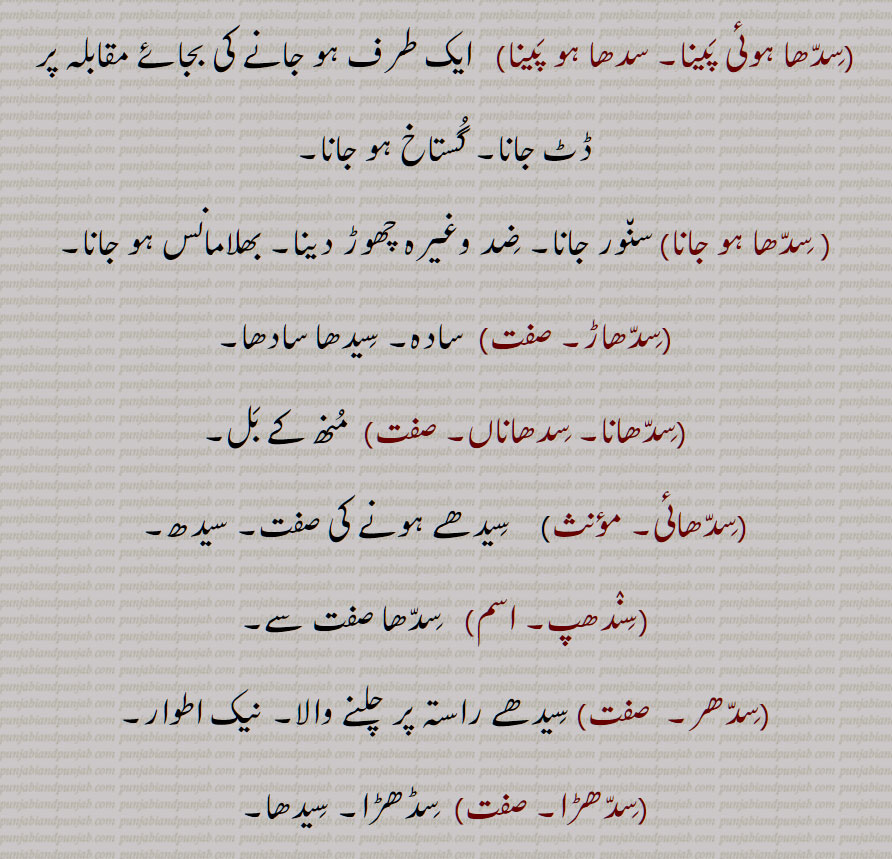 (سِدّھا ہوئی پَینا۔ سدھا ہو پَینا) ایک طرف ہو جانے کی بجائے مقابلہ پر
ڈٹ جانا۔ گُستاخ ہو جانا۔
( سِدّھا ہو جانا) سنّور جانا۔ ضِد وغیرہ چھوڑ دینا۔ بھلامانس ہو جانا۔
(سِدّھاڑ۔ صفت) سادہ۔ سِیدھا سادھا۔
(سِدّھانا۔ سِدھاناں۔ صفت) مُنھ کے بَل۔
(سِدّھائی۔ مؤنث) سِیدھے ہونے کی صفت۔ سیدھ۔
(سِنْدھپ۔ اسم) سِدّھا صفت سے۔
(سِدّھر۔ صفت) سِیدھے راستہ پر چلنے والا۔ نیک اطوار۔
(سِدّھڑا۔ صفت) سِڈھڑا۔ سِیدھا۔